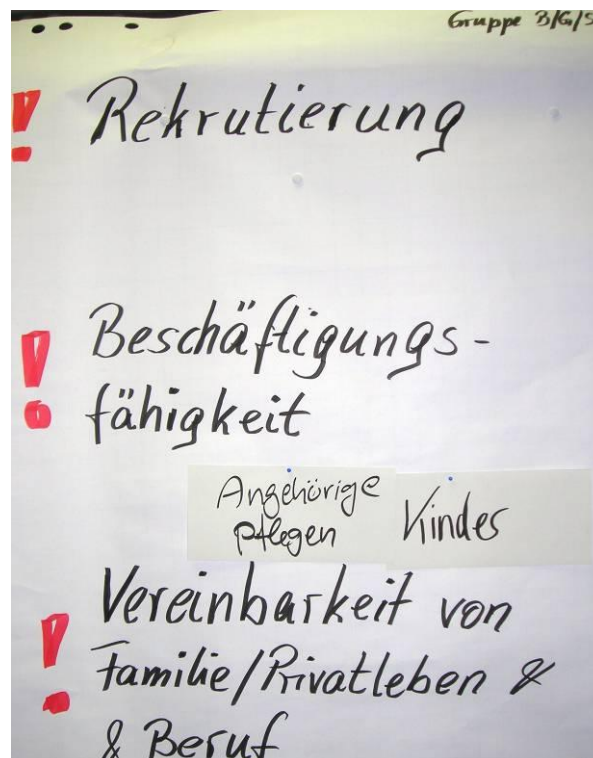 Gruppe B/G/S
Rekrutierung
Beschäftigungs-
fähigkeit
Angehörige
pflegen
Kindes
Vereinbarkeit von
Familie/Privatleben &
& Beruf